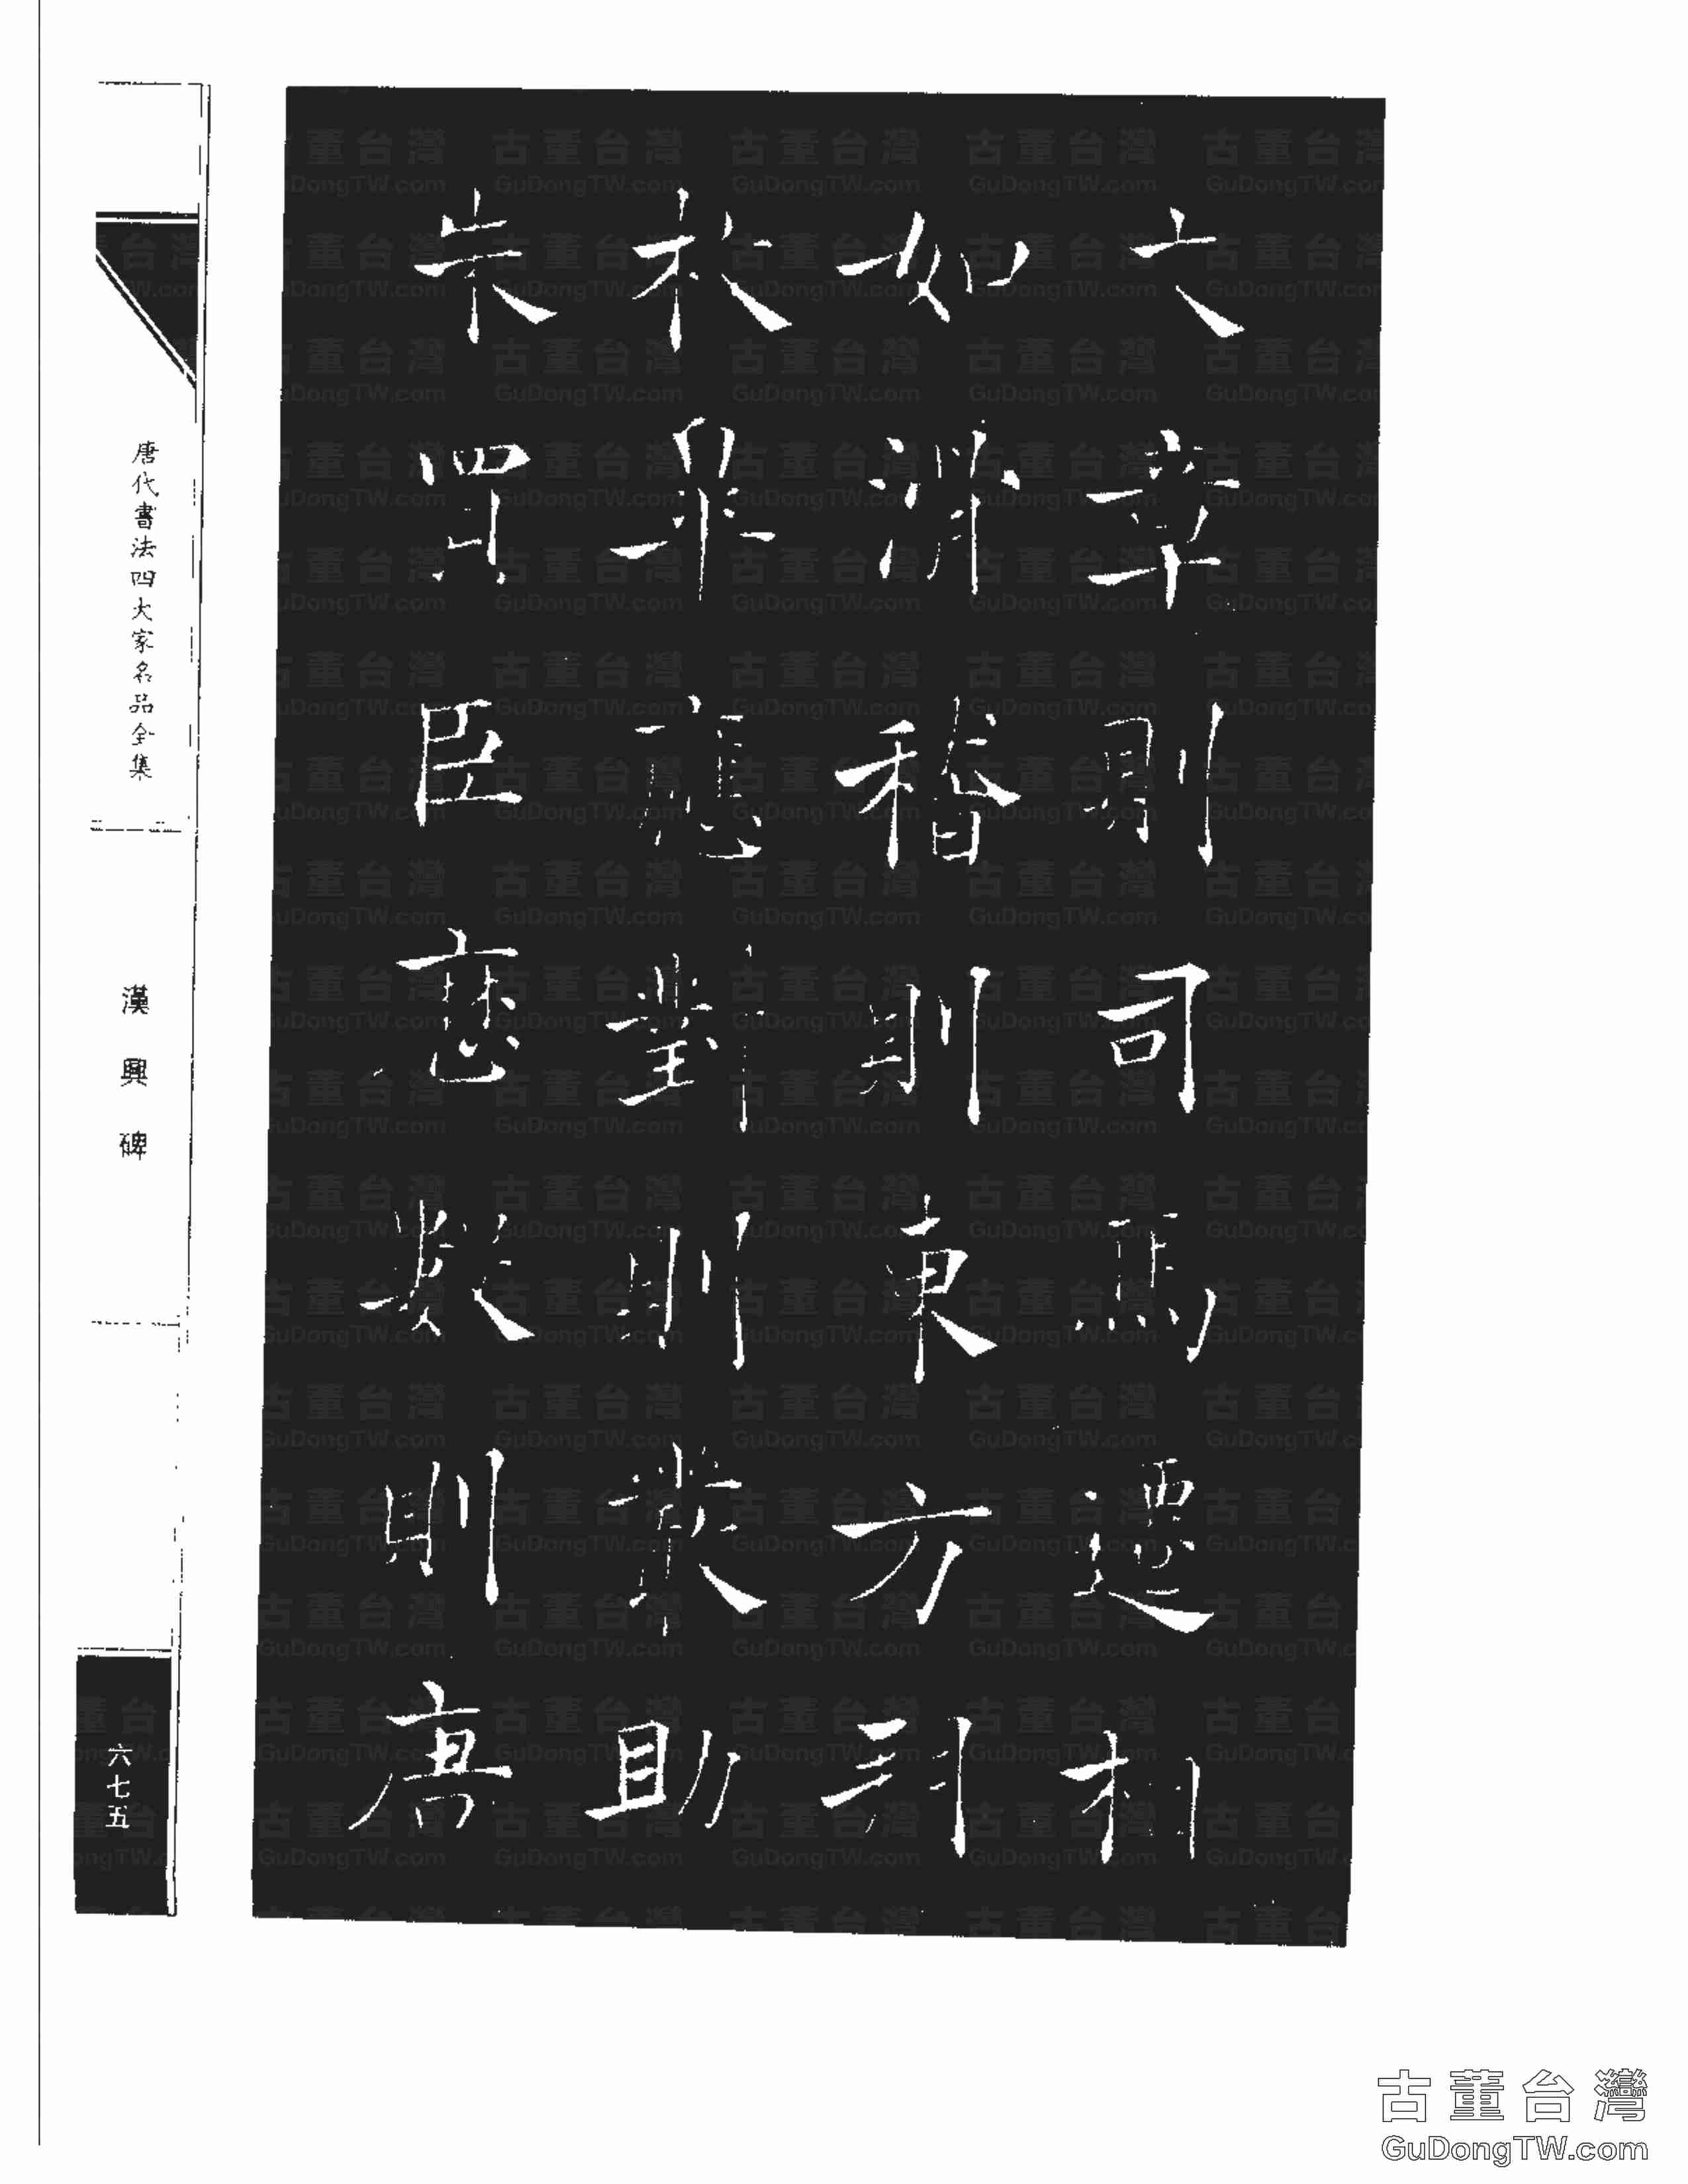 文章則司馬遷相
如滑稽則東方朔
枚皋應對則嚴助
朱買臣歷數則唐
唐代書法四大家名品全集
漢興碑
六七五
古董台灣
GuDongTW.com